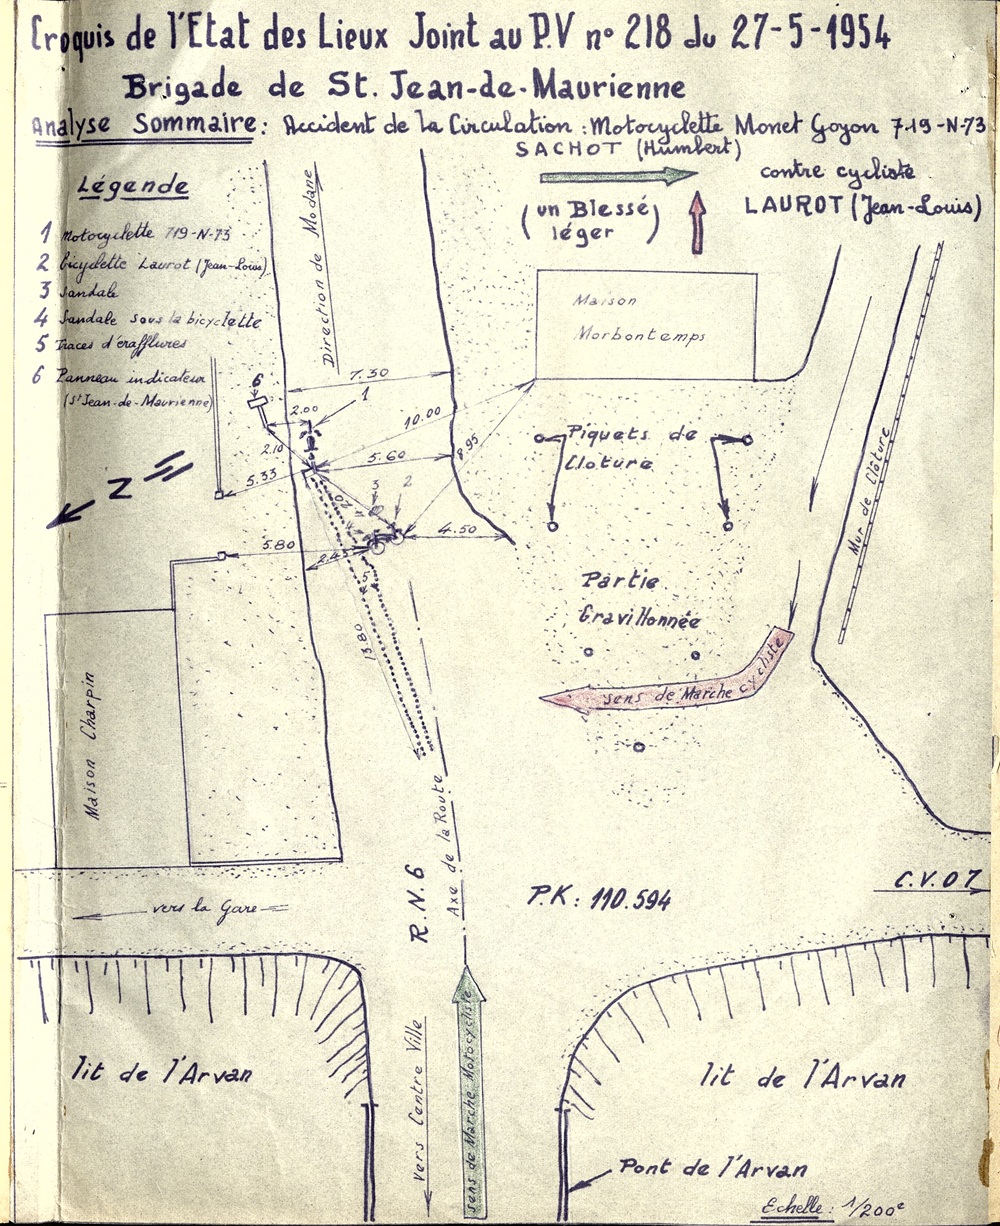 Croquis de l'Etat des Lieux Joint au P.V n° 218 du 27-5-1954
Brigade de St. Jean-de-Maurienne
Analyse Sommaire: Accident de la Circulation: Motocyclette Monet Goyon 719-N-73
SACHOT (Humbert)
contre cycliste
(un Blessé
léger)
LAUROT (Jean-Louis)
Légende
1 Motocyclette 719-N-73
2 bicyclette Laurot (Jean-Louis)
3 Sandale
4 Sandale sous la bicyclette
5 Traces d'érafflures
6 Panneau indicateur
(St Jean-de-Maurienne)
Direction de Modane
Maison
Morbontemps
7.30
6
1
2.00
10.00
2.10
5.60
8.95
5.33
Piquets de
Cloture
N
3
2
4.50
5.80
2.45
5
13.80
Mur de Clôture
Partie
Gravillonnée
Sens de Marche cycliste
Maison Charpin
Axe de la Route
R.N.6
P.K: 110.594
C.V.07
vers la Gare
lit de l'Arvan
vers Centre Ville
Sens de Marche Motocycliste
lit de l'Arvan
Pont de l'Arvan
Echelle: 1/200e